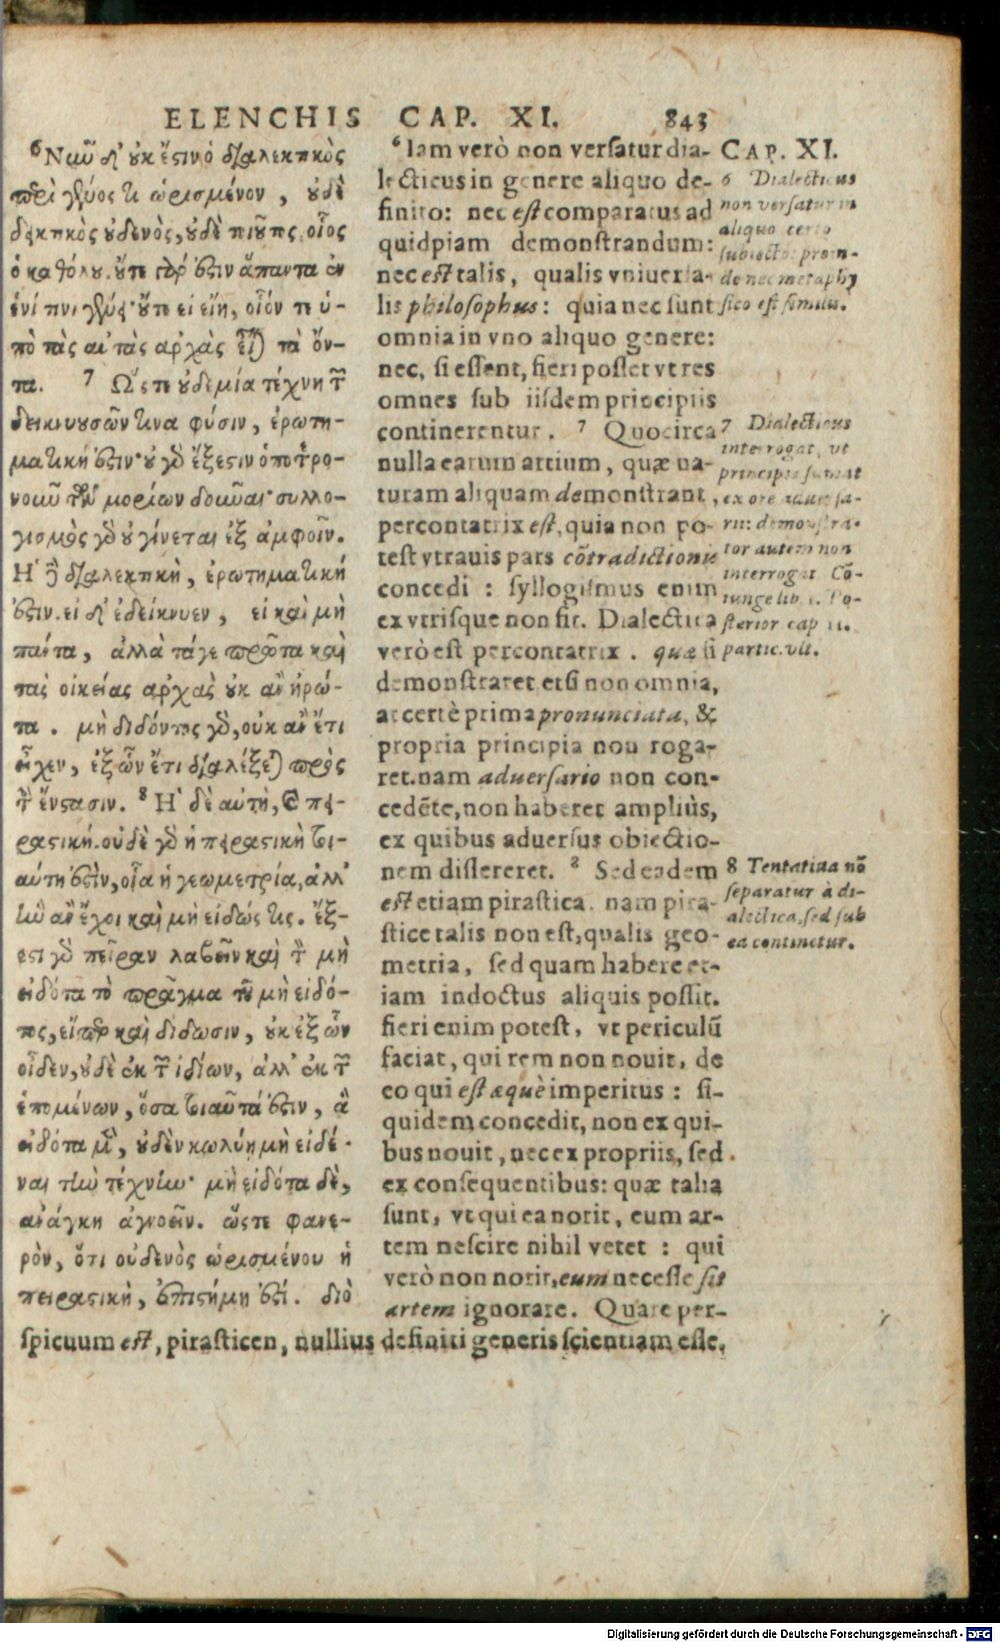 ELENCHIS CAP. XI. 843
⁶Νῦν δ' οὐκ ἔστιν ὁ διαλεκτικὸς
περὶ γένος τι ὡρισμένον, οὐδὲ
δεικτικὸς οὐδενὸς, οὐδὲ τοιοῦτος, οἷος
ὁ καθόλου. οὔτε γάρ ἐστιν ἅπαντα ἐν
ἑνί τινι γένει· οὔτε εἰ εἴη, οἷόν τε ὑ-
πὸ τὰς αὐτὰς ἀρχὰς εἶναι τὰ ὄν-
τα. 7 Ὥστε οὐδεμία τέχνη τῶν
δεικνυουσῶν τινα φύσιν, ἐρωτη-
ματική ἐστιν· οὐ γὰρ ἔξεστιν ὁποτερο-
νοῦν τῶν μορίων δοῦναι· συλλο-
γισμὸς γὰρ οὐ γίνεται ἐξ ἀμφοῖν.
Ἡ δὲ διαλεκτικὴ, ἐρωτηματική
ἐστιν. εἰ δ' ἐδείκνυεν, εἰ καὶ μὴ
πάντα, ἀλλὰ τάγε πρῶτα καὶ
τὰς οἰκείας ἀρχὰς οὐκ ἂν ἠρώ-
τα. μὴ διδόντος γὰρ, οὐκ ἂν ἔτι
εἶχεν, ἐξ ὧν ἔτι διαλέξεται πρὸς
τὴν ἔνστασιν. ⁸ Ἡ δὲ αὐτὴ, καὶ πει-
ραστική. οὐδὲ γὰρ ἡ πειραστικὴ τοι-
αύτη ἐστὶν, οἵα ἡ γεωμετρία, ἀλλ'
ἣν ἂν ἔχοι καὶ μὴ εἰδώς τις. ἔξ-
εστι γὰρ πεῖραν λαβεῖν καὶ τὸν μὴ
εἰδότα τὸ πρᾶγμα τοῦ μὴ εἰδό-
τος, εἴπερ καὶ δίδωσιν, οὐκ ἐξ ὧν
οἶδεν, οὐδὲ ἐκ τῶν ἰδίων, ἀλλ' ἐκ τῶν
ἑπομένων, ὅσα τοιαῦτά ἐστιν, ἃ
εἰδότα μὲν, οὐδὲν κωλύει μὴ εἰδέ-
ναι τὴν τέχνην· μὴ εἰδότα δὲ,
ἀνάγκη ἀγνοεῖν. ὥστε φανε-
ρὸν, ὅτι οὐδενὸς ὡρισμένου ἡ
πειραστικὴ, ἐπιστήμη ἐστί. διὸ
⁶Iam verò non versatur dia-
lecticus in genere aliquo de-
finito: nec est comparatus ad
quidpiam demonstrandum:
nec est talis, qualis vniuersa-
lis philosophus: quia nec sunt
omnia in vno aliquo genere:
nec, si essent, fieri posset vt res
omnes sub iisdem principiis
continerentur. 7 Quocirca
nulla earum artium, quæ na-
turam aliquam demonstrant,
percontatrix est, quia non po-
test vtrauis pars cõtradictionis
concedi: syllogismus enim
ex vtrisque non fit. Dialectica
verò est percontatrix. quæ si
demonstraret etsi non omnia,
at certè prima pronunciata, &
propria principia non roga-
ret. nam aduersario non con-
cedẽte, non haberet ampliùs,
ex quibus aduersus obiectio-
nem dissereret. ⁸ Sed eadem
est etiam pirastica. nam pira-
stice talis non est, qualis geo-
metria, sed quam habere et-
iam indoctus aliquis possit.
fieri enim potest, vt periculũ
faciat, qui rem non nouit, de
eo qui est æquè imperitus: si-
quidem concedit, non ex qui-
bus nouit, nec ex propriis, sed
ex consequentibus: quæ talia
sunt, vt qui ea norit, eum ar-
tem nescire nihil vetet: qui
verò non norit, eum necesse sit
artem ignorare. Quare per-
spicuum est, pirasticen, nullius definiti generis scientiam esse.
CAP. XI.
6 Dialecticus
non versatur in
aliquo certo
subiecto: proin-
de nec metaphy
sico est similis.
7 Dialecticus
interrogat, vt
principia sumat
ex ore aduersa-
rii: demonstra-
tor autem non
interrogat. Cõ-
iunge lib. 1. Po-
sterior. cap 11.
partic. vlt.
8 Tentatiua nõ
separatur à di-
alectica, sed sub
ea continetur.
Digitalisierung gefördert durch die Deutsche Forschungsgemeinschaft - DFG